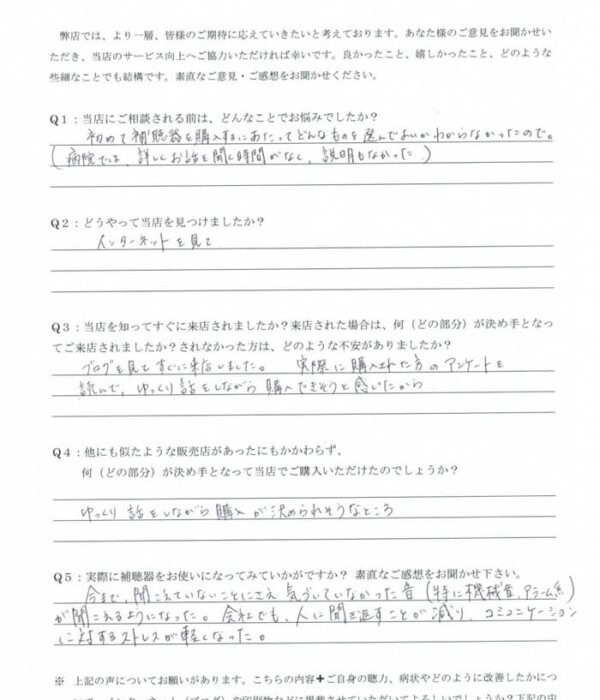 弊店では、より一層、皆様のご期待に応えていきたいと考えております。あなた様のご意見をお聞かせい
ただき、当店のサービス向上へご協力いただければ幸いです。良かったこと、嬉しかったこと、どのような
些細なことでも結構です。素直なご意見・ご感想をお聞かせください。
Q1：当店にご相談される前は、どんなことでお悩みでしたか？
初めて補聴器を購入するにあたってどんなものを選んでよいかわからなかったので。
(病院では、詳しくお話を聞く時間がなく、説明もなかった)
Q2：どうやって当店を見つけましたか？
インターネットを見て
Q3：当店を知ってすぐに来店されましたか？来店された場合は、何（どの部分）が決め手となっ
てご来店されましたか？されなかった方は、どのような不安がありましたか？
ブログを見てすぐに来店しました。 実際に購入された方のアンケートを
読んで、ゆっくり話をしながら購入できそうと感じたから
Q4：他にも似たような販売店があったにもかかわらず、
何（どの部分）が決め手となって当店でご購入いただけたのでしょうか？
ゆっくり話をしながら購入が決められそうなところ
Q5：実際に補聴器をお使いになってみていかがですか？ 素直なご感想をお聞かせ下さい。
今まで、聞こえていないことにさえ気づいていなかった音(特に機械音、アラーム系)
が聞こえるようになった。会社でも、人に聞き返すことが減り、コミュニケーション
に対するストレスが軽くなった。
※ 上記の声についてお願いがあります。こちらの内容＋ご自身の聴力、病状やどのように改善したかにつ